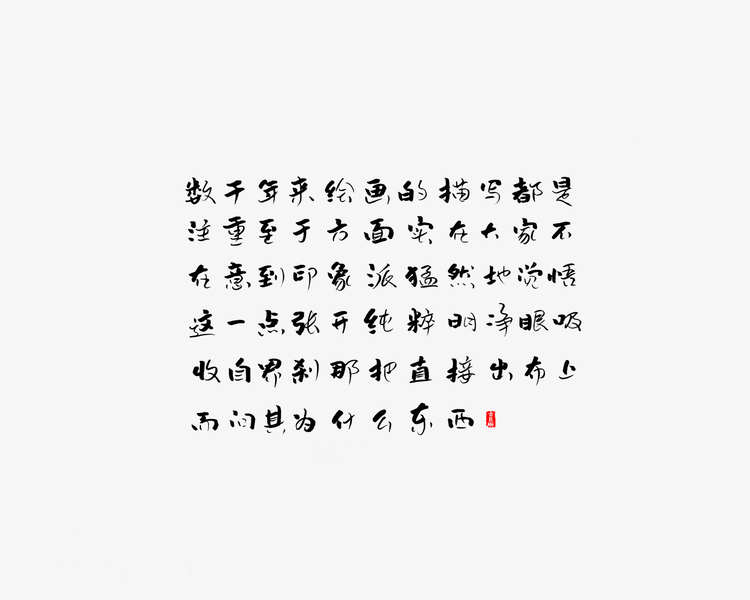 数千年来绘画的描写都是
注重至于方面实在大家不
在意到印象派猛然地觉悟
这一点张开纯粹明净眼吸
收自界刹那把直接出布上
而问其为什么东西